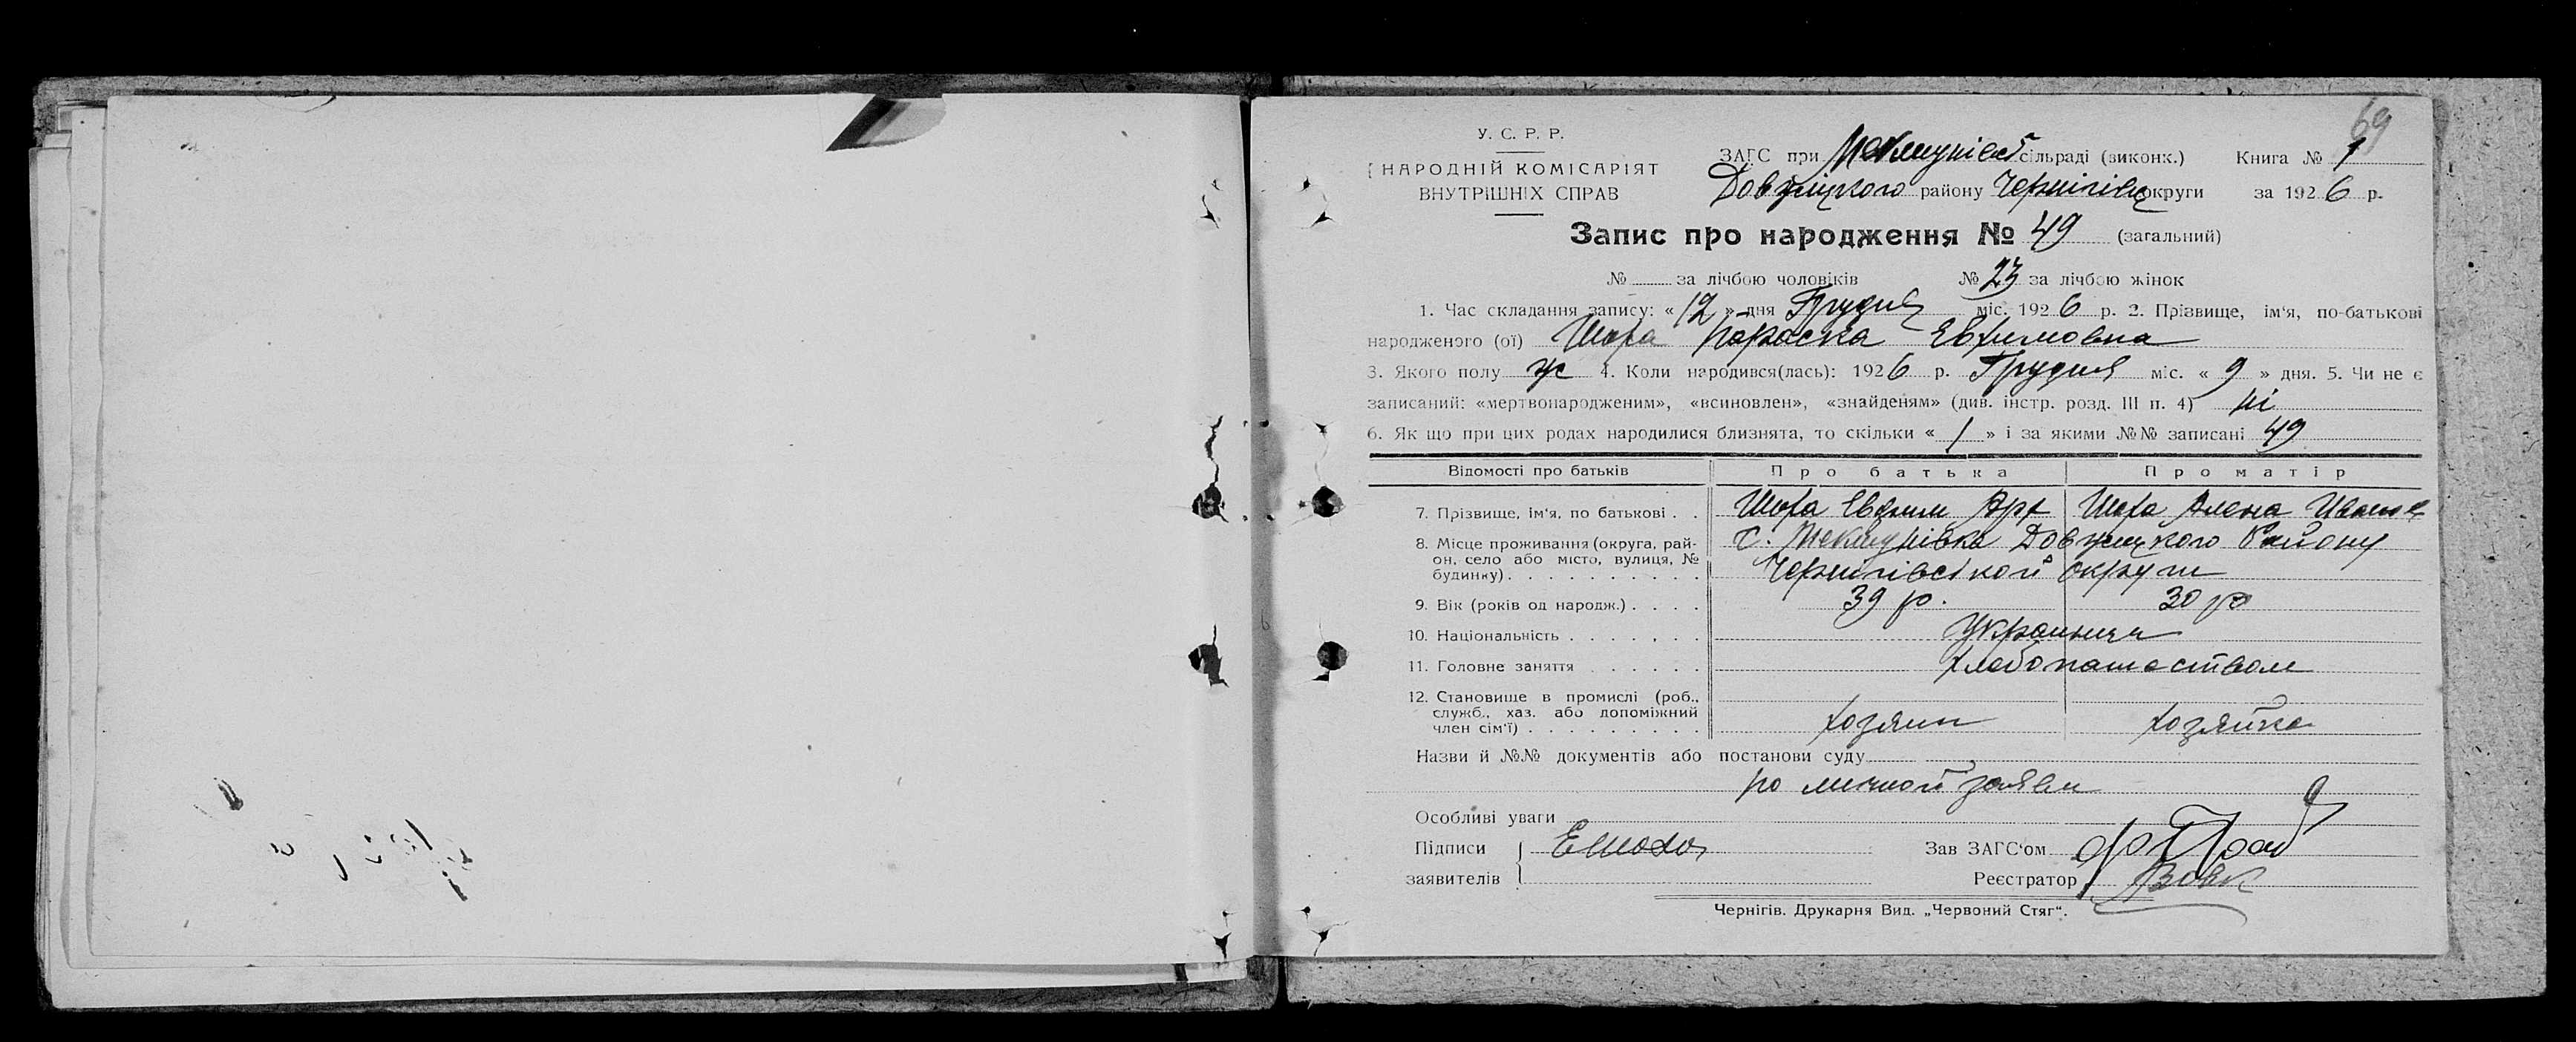 69
У. С. Р. Р.
НАРОДНІЙ КОМІСАРІЯТ
ВНУТРІШНІХ СПРАВ
ЗАГС при сільраді (виконк.) Книга № 1
Довжицкого району Чернігівс округи за 1926 р.
Запис про народження № 49 (загальний)
№ за лічбою чоловіків № 23 за лічбою жінок
1. Час складання запису: «12» дня Грудня міс. 1926 р. 2. Прізвище, ім‘я, по-батькові
народженого (ої) Шоха Параска Евхимовна
3. Якого полу ж 4. Коли народився(лась): 1926 р. Грудня міс. « 9 » дня. 5. Чи не є
записаний: «мертвонародженим», «всиновлен», «знайденям» (див. інстр. розд. III п. 4) ні
6. Як що при цих родах народилися близнята, то скільки « 1 » і за якими №№ записані 49
Відомості про батьків Про батька Про матір
7. Прізвище, ім‘я, по батькові . . Шоха Евхим Шоха Алена Иванов
8. Місце проживання (округа, рай-
он, село або місто, вулиця, №
будинку) . . . . . . . . . .
с. Довжицкого Району
Чернигівської округи
9. Вік (років од народж.) . . . . 39 р. 30 р
10. Національність . . . . . . . Украинци
11. Головне заняття . . . . . . хлебопашеством
12. Становище в промислі (роб.,
служб., хаз. або допоміжний
член сім‘ї) . . . . . . . . . хозяин хозяйка
Назви й №№ документів або постанови суду
по личной заяви
Особливі уваги
Підписи Е Шоха
заявителів
Зав ЗАГС‘ом
Реєстратор Вовк
Чернігів. Друкарня Вид. „Червоний Стяг“.